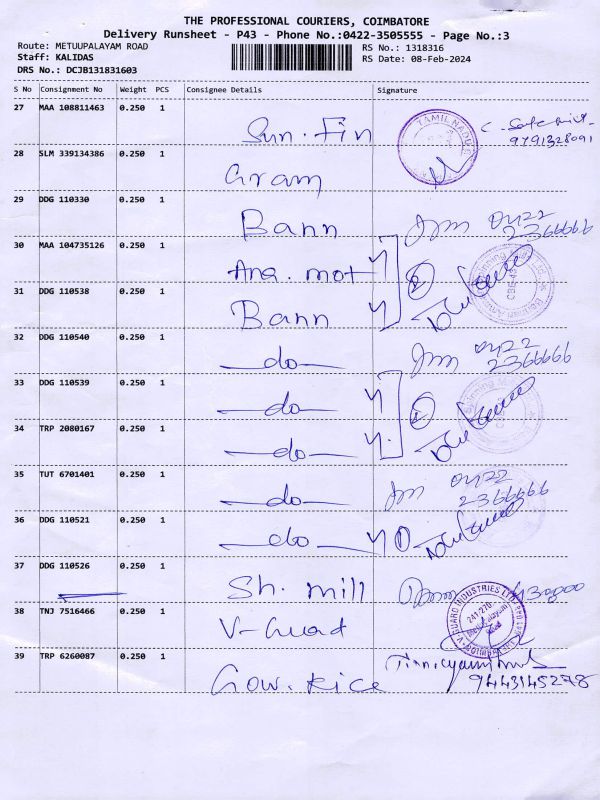 THE PROFESSIONAL COURIERS, COIMBATORE
Delivery Runsheet - P43 - Phone No.:0422-3505555 - Page No.:3
Route: METUUPALAYAM ROAD RS No.: 1318316
Staff: KALIDAS RS Date: 08-Feb-2024
DRS No.: DCJB131831603
S No Consignment No Weight PCS Consignee Details Signature
27 MAA 108811463 0.250 1 Sun. Fin TAMIL NADU
9791328091
28 SLM 339134386 0.250 1 Gram
29 DDG 110330 0.250 1 Bann 0422
2366666
30 MAA 104735126 0.250 1 Ana. mot 2
31 DDG 110538 0.250 1 Bann
32 DDG 110540 0.250 1 do 0422
2366666
33 DDG 110539 0.250 1 do
34 TRP 2080167 0.250 1 do
35 TUT 6701401 0.250 1 do 0422
2366666
36 DDG 110521 0.250 1 do
37 DDG 110526 0.250 1 Sh. mill
38 TNJ 7516466 0.250 1 V-Guad V-GUARD INDUSTRIES LTD
39 TRP 6260087 0.250 1 Gow. Rice
9443145278